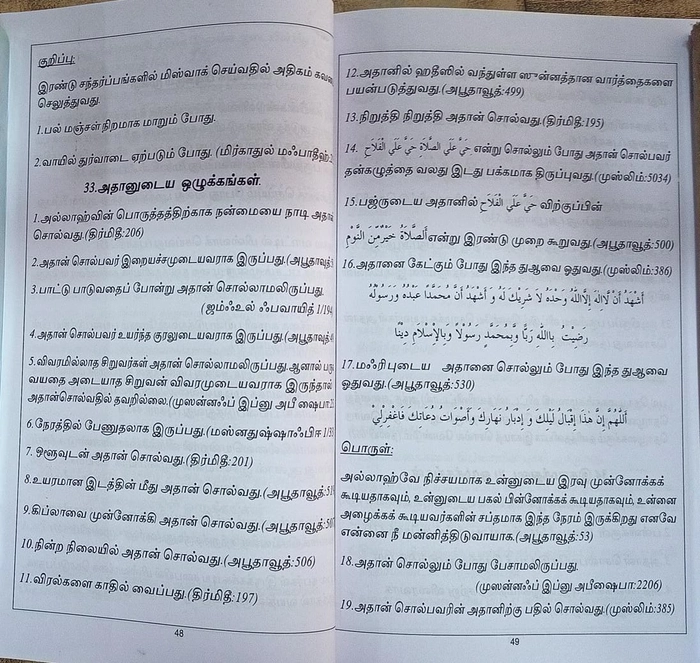 குறிப்பு:
இரண்டு சந்தர்ப்பங்களில் மிஸ்வாக் செய்வதில் அதிகம்
செலுத்துவது.
1.பல் மஞ்சள் நிறமாக மாறும் போது.
2.வாயில் துர்வாடை ஏற்படும் போது. (மிர்காதுல் மஃபாதீஹ்
33.அதானுடைய ஒழுக்கங்கள்.
1.அல்லாஹ்வின் பொருத்தத்திற்காக நன்மையை நாடி
சொல்வது.(திர்மிதீ:206)
2.அதான் சொல்பவர் இறையச்சமுடையவராக இருப்பது.(அபூதாவூத்
3.பாட்டு பாடுவதைப் போன்று அதான் சொல்லாமலிருப்பது.
(ஜம்ஃஉல் ஃபவாயித் 1/194
4.அதான் சொல்பவர் உயர்ந்த குரலுடையவராக இருப்பது.(அபூதாவூத்
5.விவரமில்லாத சிறுவர்கள் அதான் சொல்லாமலிருப்பது.ஆனால்
வயதை அடையாத சிறுவன் விவரமுடையவராக இருந்தால்
அதான்சொல்வதில் தவறில்லை.(முஸன்னஃப் இப்னு அபீ ஷைபா
6.நேரத்தில் பேணுதலாக இருப்பது.(மஸ்னதுஷ்ஷாஃபிஈ
7. ஒளூவுடன் அதான் சொல்வது.(திர்மிதீ:201)
8.உயரமான இடத்தின் மீது அதான் சொல்வது.(அபூதாவூத்
9.கிப்லாவை முன்னோக்கி அதான் சொல்வது.(அபூதாவூத்:507
10.நின்ற நிலையில் அதான் சொல்வது.(அபூதாவூத்:506)
11.விரல்களை காதில் வைப்பது.(திர்மிதீ:197)
48
12.அதானில் ஹதீஸில் வந்துள்ள ஸுன்னத்தான வார்த்தைகளை
பயன்படுத்துவது.(அபூதாவூத்:499)
13.நிறுத்தி நிறுத்தி அதான் சொல்வது.(திர்மிதீ:195)
14. حَيَّ عَلَي الصَّلَاةِ حَيَّ عَلَي الْفَلَاحِ என்று சொல்லும் போது அதான் சொல்பவர்
தன்கழுத்தை வலது இடது பக்கமாக திருப்புவது.(முஸ்லிம்:5034)
15.பஜ்ருடைய அதானில் حَيَّ عَلَي الْفَلَاحِ விற்குப்பின்
اَلصَّلَاةُ خَيْرٌمِّنَ النَّوْمِ என்று இரண்டு முறை கூறுவது.(அபூதாவூத்:500)
16.அதானை கேட்கும் போது இந்த துஆவை ஓதுவது.(முஸ்லிம்:386)
أَشْهَدُ أَنْ لَّااِلٰهَ اِلَّااللّٰهُ وَحْدَهُ لَا شَرِيْكَ لَهُ وَ أَشْهَدُ أَنَّ مُحَمَّدًا عَبْدُهُ وَرَسُوْلُهُ
رَضِيْتُ بِاللّٰهِ رَبًّا وَّبِمُحَمَّدٍ رَسُوْلًا وَبِالْإِسْلَامِ دِيْنًا
17.மஃரிபுடைய அதானை சொல்லும் போது இந்த துஆவை
ஓதுவது.(அபூதாவூத்:530)
اَللّٰهُمَّ إِنَّ هٰذَا إِقْبَالُ لَيْلِكَ وَ إِدْبَارُ نَهَارِكَ وَأَصْوَاتُ دُعَاتِكَ فَاغْفِرْلِيْ
பொருள்:
அல்லாஹ்வே நிச்சயமாக உன்னுடைய இரவு முன்னோக்கக்
கூடியதாகவும், உன்னுடைய பகல் பின்னோக்கக் கூடியதாகவும், உன்னை
அழைக்கக் கூடியவர்களின் சப்தமாக இந்த நேரம் இருக்கிறது எனவே
என்னை நீ மன்னித்திடுவாயாக.(அபூதாவூத்:53)
18.அதான் சொல்லும் போது பேசாமலிருப்பது.
(முஸன்னஃப் இப்னு அபீஷைபா:2206)
19.அதான் சொல்பவரின் அதானிற்கு பதில் சொல்வது.(முஸ்லிம்:385)
49